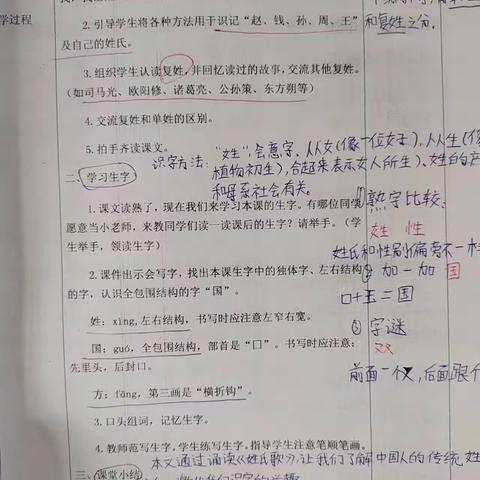 学过程
2.引导学生将各种方法用于识记“赵、钱、孙、周、王”
和复姓之分。
及自己的姓氏。
3.组织学生认读复姓,并回忆读过的故事,交流其他复姓。
(如司马光、欧阳修、诸葛亮、公孙策、东方朔等)
4.交流复姓和单姓的区别。
5.拍手齐读课文。
识字方法:“姓”,会意字、从女(像一位女子),从人生(像
植物初生),合起来表示女人所生)、姓的产
和母系社会有关。
二、学习生字
1.课文读熟了,现在我们来学习本课的生字。有哪位同学
愿意当小老师,来教同学们读一读课后的生字?请举手。(学
生举手,领读生字)
熟字比较:
姓 性
姓氏和性别偏旁不一样
2.课件出示会写字,找出本课生字中的独体字、左右结构
的字,认识全包围结构的字“国”。
加一加 国
口+玉=国
姓:xìng,左右结构,书写时应注意左窄右宽。
国:guó,全包围结构,部首是“囗”。书写时应注意:
先里头,后封口。
③字谜
双
前面一个又,后面跟个
方:fāng,第三画是“横折钩”。
3.口头组词,记忆生字。
4.教师范写生字,学生练写生字。指导学生注意笔顺笔画。
三、课堂小结
本文通过诵读《姓氏歌》,让我们了解中国人的传统姓